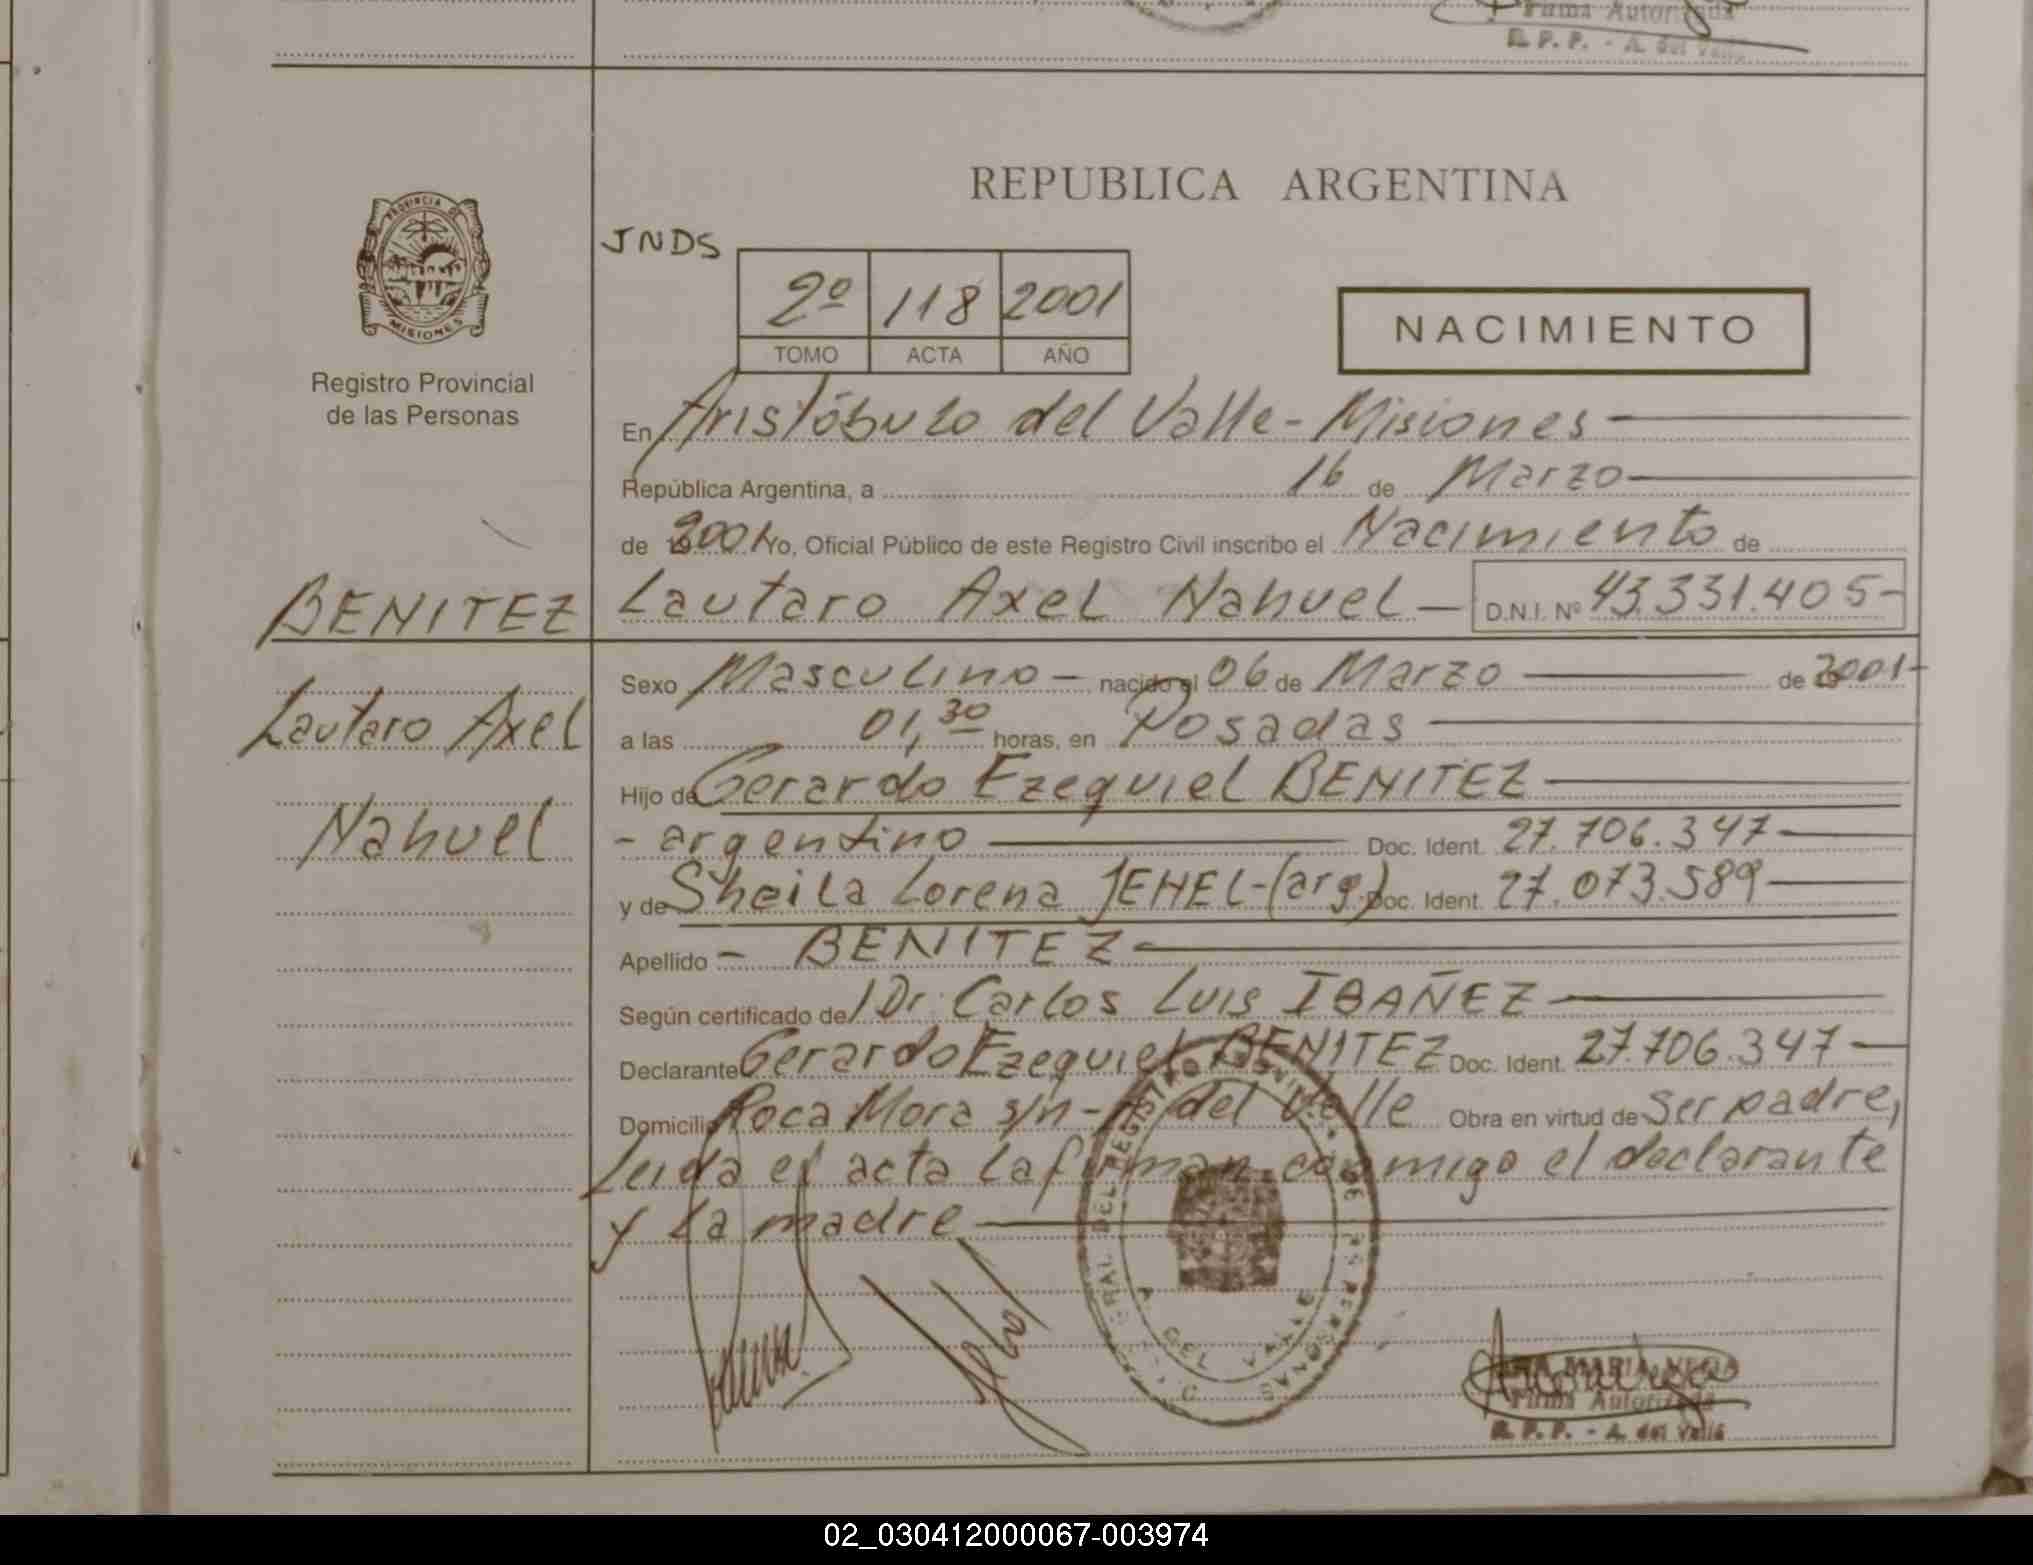 Firma Autorizada
R. P. P. - A. del Valle
REPUBLICA ARGENTINA
PROVINCIA DE
MISIONES
Registro Provincial
de las Personas
JNDS
2º 118 2001
TOMO ACTA AÑO
NACIMIENTO
En Aristóbulo del Valle - Misiones
República Argentina, a 16 de Marzo
de 2001 Yo, Oficial Público de este Registro Civil inscribo el Nacimiento de
BENITEZ
Lautaro Axel Nahuel - D.N.I. Nº 43.331.405-
Lautaro Axel
Nahuel
Sexo Masculino - nacido el 06 de Marzo de 2001-
a las 01,30 horas, en Posadas
Hijo de Gerardo Ezequiel BENITEZ
- argentino Doc. Ident. 27.706.347
y de Sheila Lorena JEHEL - (arg.) Doc. Ident. 27.073.589
Apellido - BENITEZ
Según certificado de Dr. Carlos Luis IBAÑEZ
Declarante Gerardo Ezequiel BENITEZ Doc. Ident. 27.706.347
Domicilio Roca Mora s/n - A. del Valle Obra en virtud de ser padre,
Leida el acta la firman conmigo el declarante
y la madre
DEL REGISTRO DE LAS PERSONAS
A. DEL VALLE
ANA MARIA
Firma Autorizada
R. P. P. - A. del Valle
02_030412000067-003974